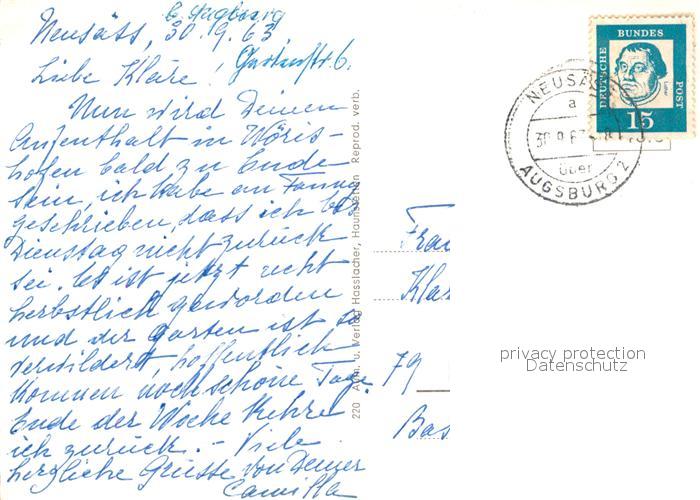 b. Augsburg
Neusäss, 30.9.63
Gartenstr. 6.
Liebe Kläre!
Nun wird Deinen
Aufenthalt in Wöris-
hofen bald zu Ende
sein, ich habe an Fanny
geschrieben, dass ich bis
Dienstag nicht zurück
sei. Es ist jetzt recht
herbstlich geworden
und der Garten ist so
verwildert, hoffentlich
kommen noch schöne Tage.
Ende der Woche kehre
ich zurück. – Viele
herzliche Grüsse von Deiner
Camilla
220 Aufn. u. Verlag Hasslacher, Haunstetten Reprod. verb.
DEUTSCHE BUNDES POST
Luther
15
NEUSÄ
a
30.9.63
über
AUGSBURG 2
Frau
Klä
79
Bas
privacy protection
Datenschutz